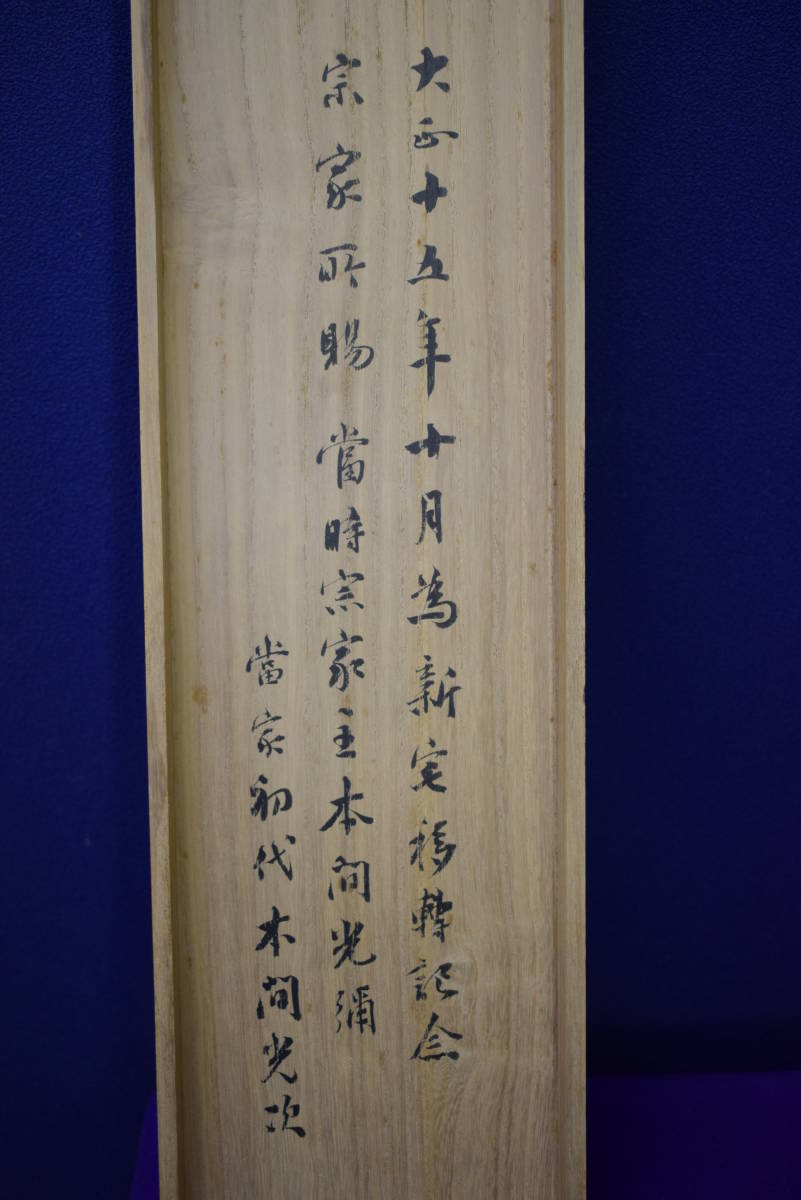 大正十五年十月為新宅移轉記念
宗家所賜 當時宗家主本間光彌
當家初代本間光次